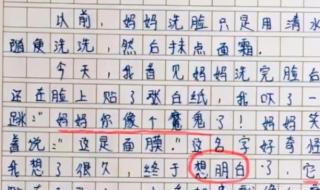 以前，妈妈洗脸只是用清水
随便洗洗，然后抹点面霜。
今天，我看见妈妈洗完脸后
还在脸上贴了张白纸，我吓一
跳："妈妈你像个魔鬼了！妈妈笑
着说："这是面膜"这名字好奇怪
我想了很久，终于想明白了，它